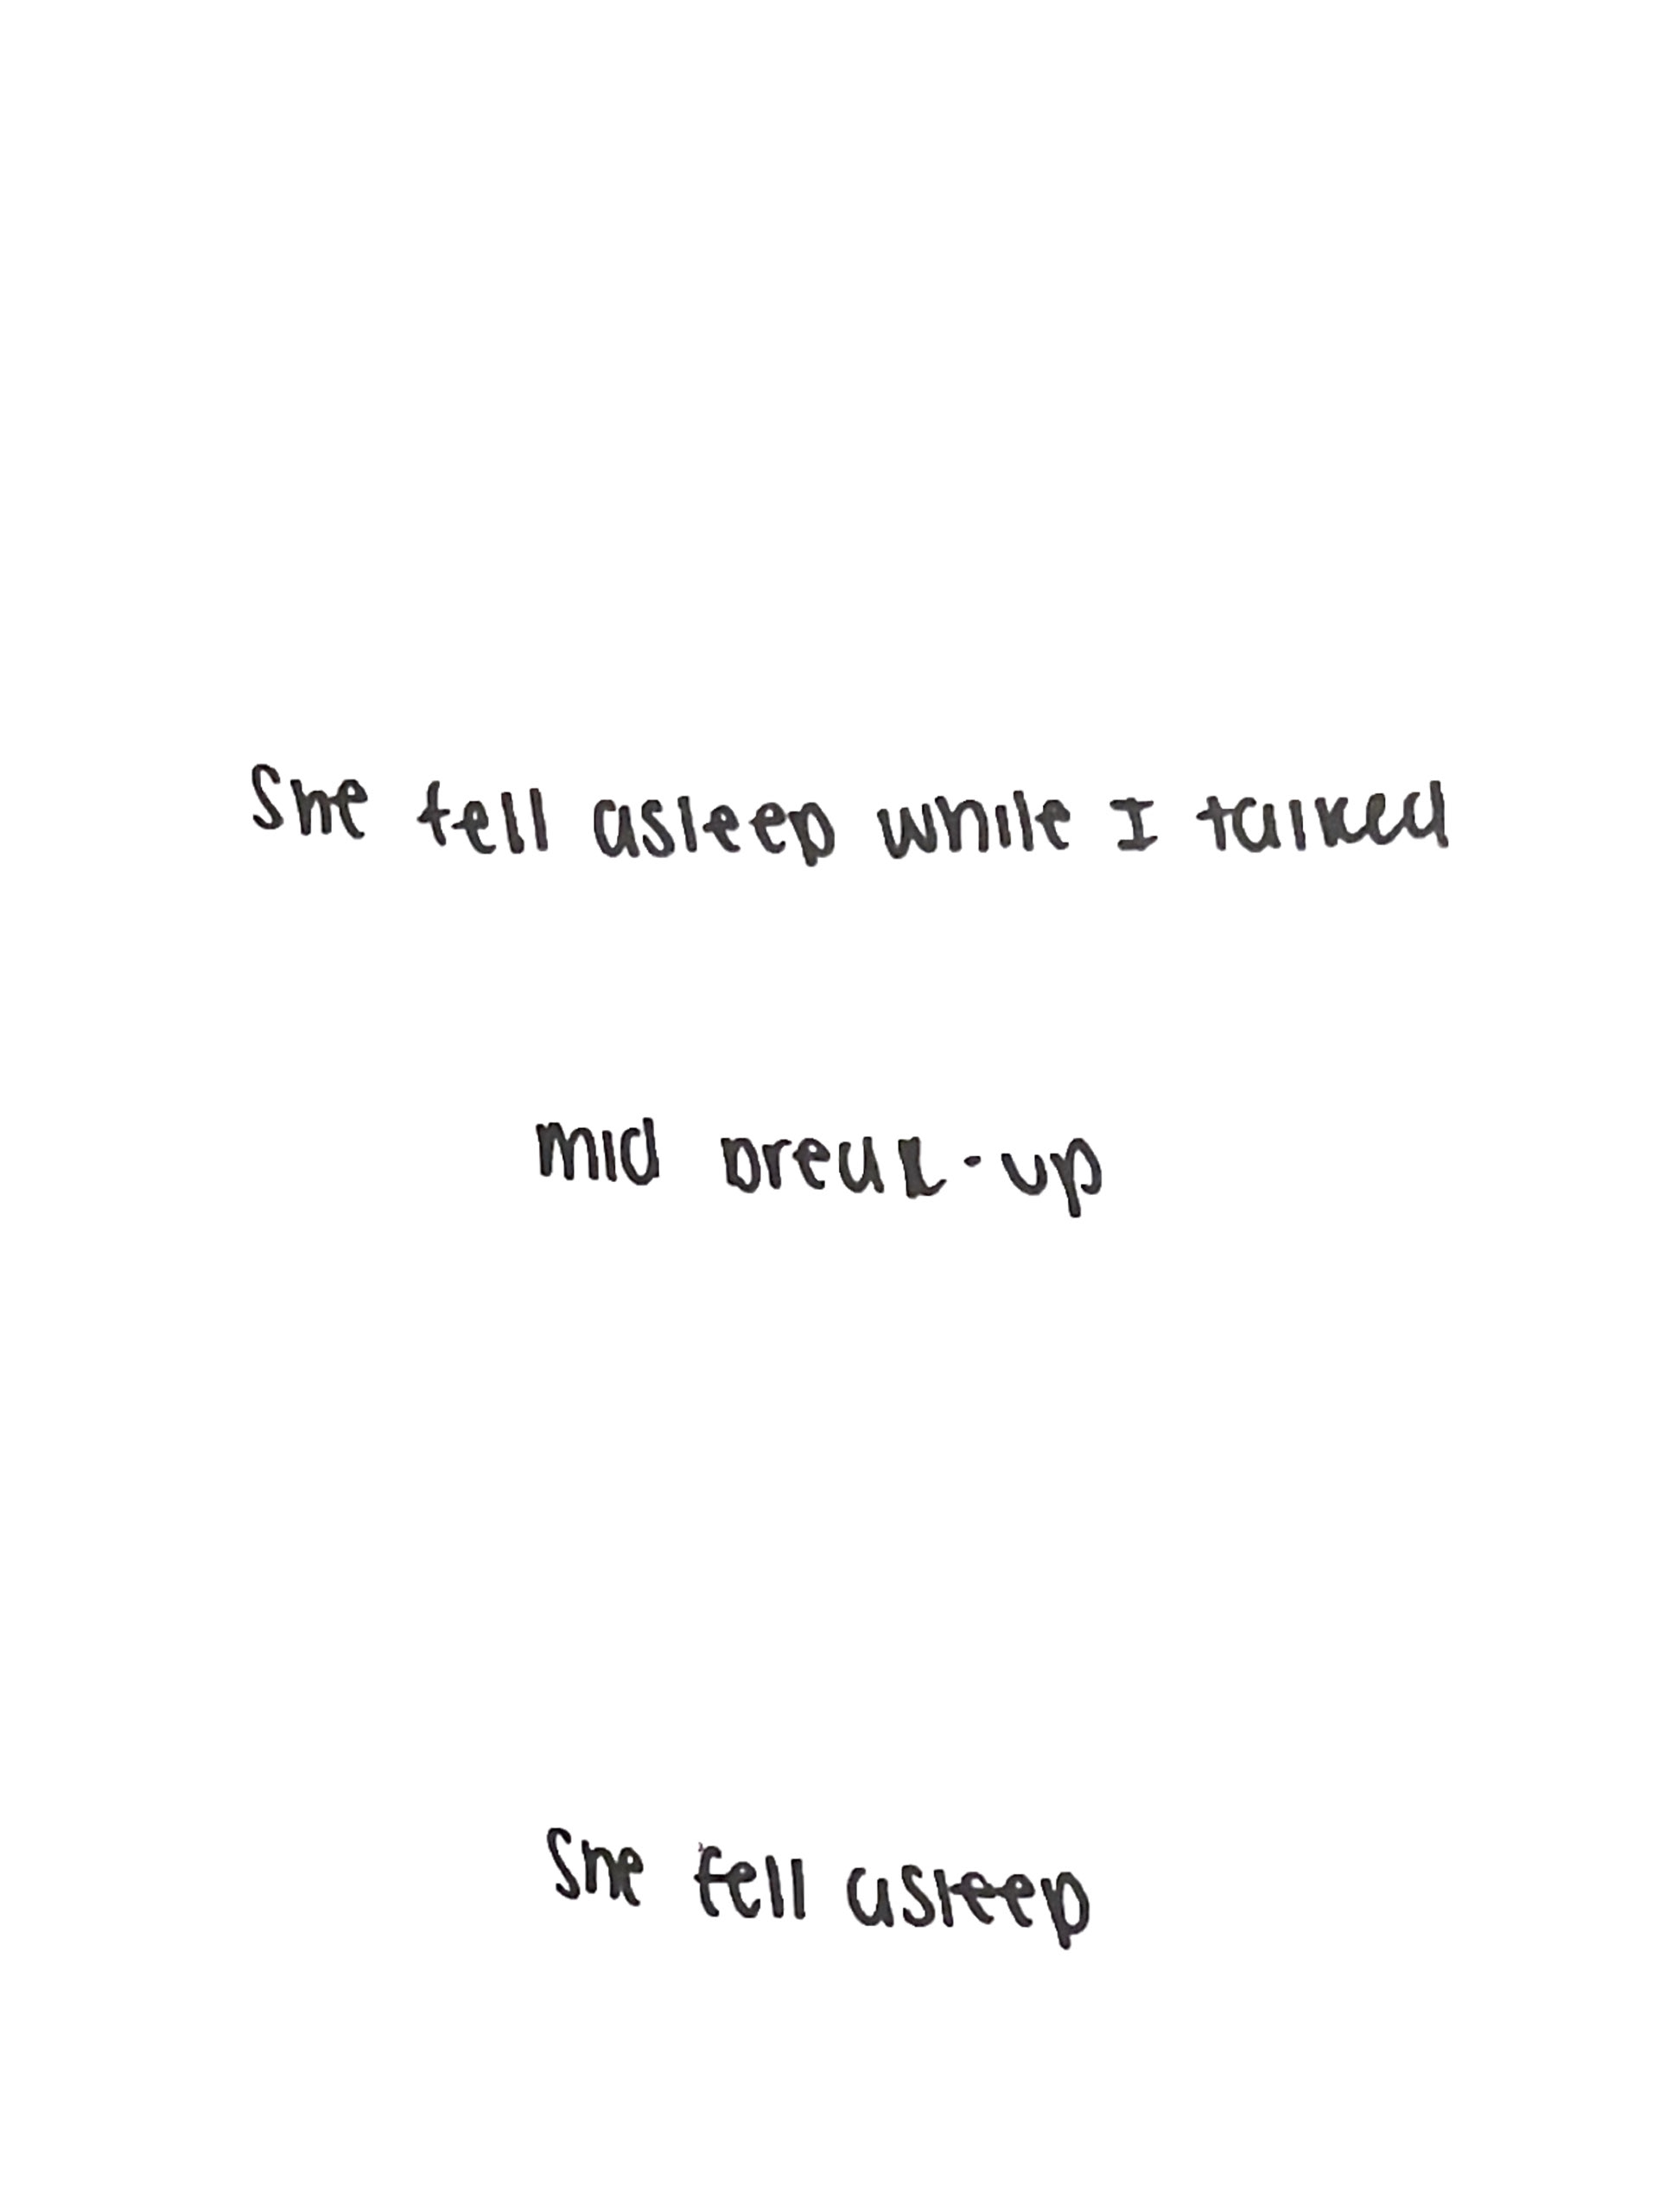 She fell asleep while I talked
mid break-up
She fell asleep